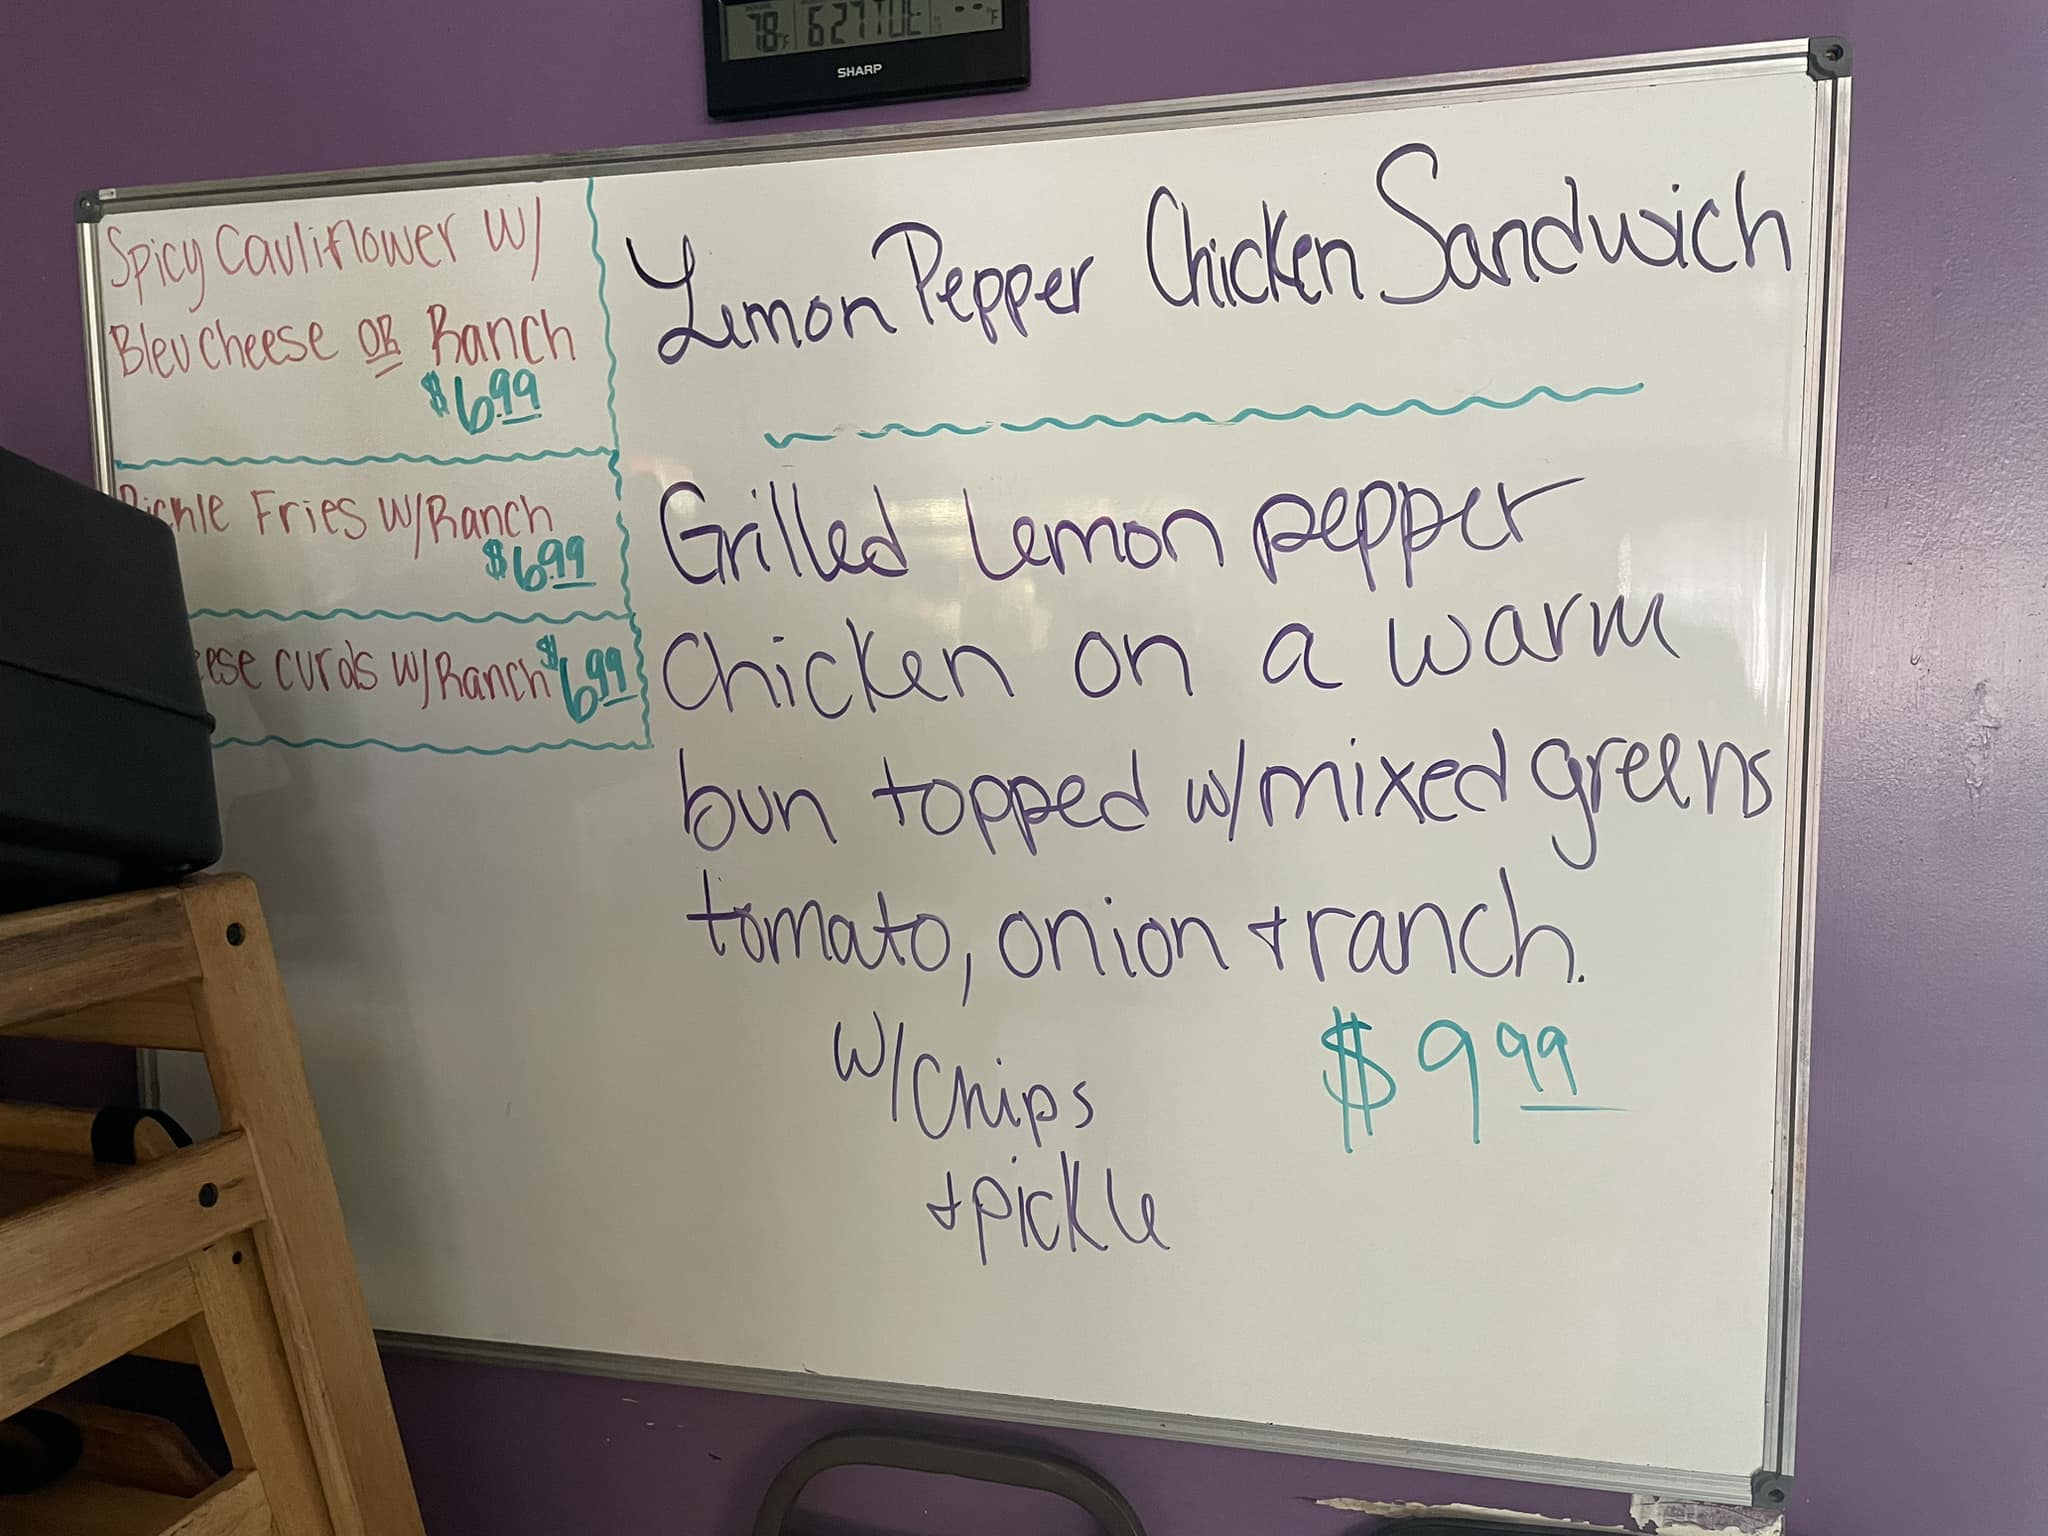 78°F 6 27 TUE --°F
SHARP
Spicy Cauliflower W/
Bleu Cheese OR Ranch
$6.99
Pickle Fries W/Ranch
$6.99
eese curds W/Ranch $6.99
Lemon Pepper Chicken Sandwich
Grilled Lemon pepper
Chicken on a warm
bun topped w/mixed greens
tomato, onion + ranch.
W/Chips
+ pickle
$9.99